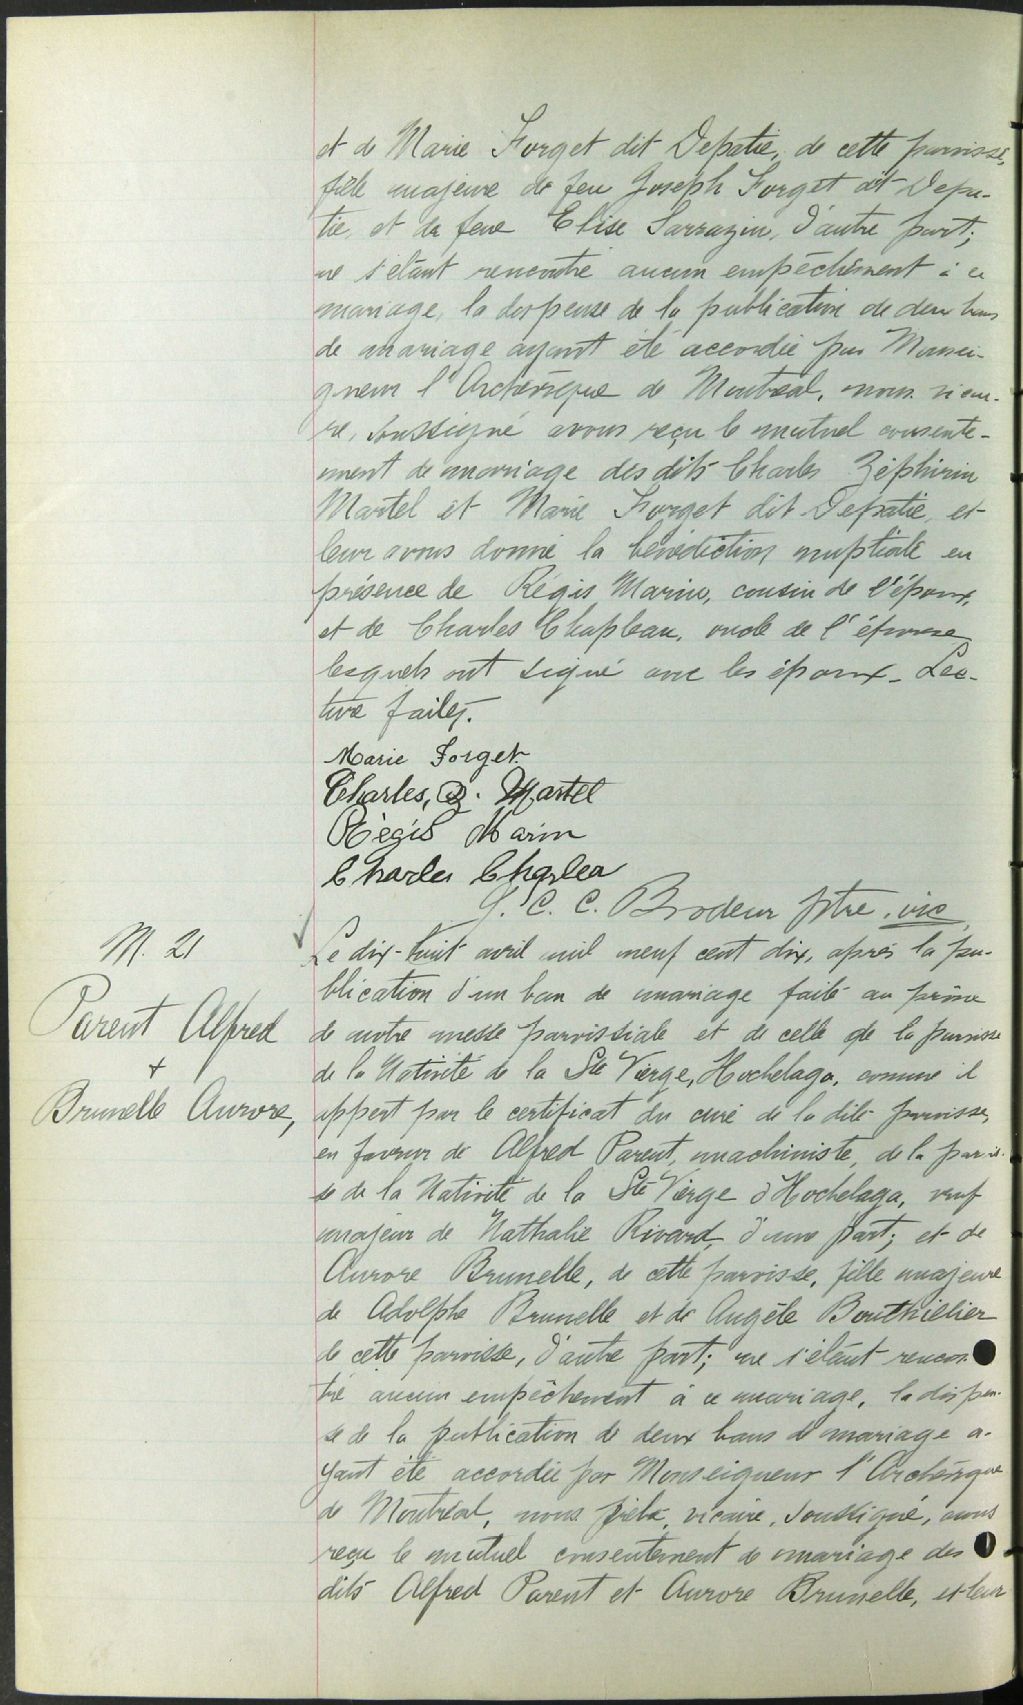 et de Marie Forget dit Depatie, de cette paroisse,
fille majeure de feu Joseph Forget dit Depa-
tie, et de feue Elise Sarrazin, d'autre part;
ne s'étant rencontré aucun empêchement à ce
mariage, la dispense de la publication de deux bans
de mariage ayant été accordée par Monsei-
gneur l'Archevêque de Montréal, nous vicai-
re, soussigné avons reçu le mutuel consente-
ment de mariage des dits Charles Zéphirin
Martel et Marie Forget dit Depatie, et
leur avons donné la bénédiction nuptiale en
présence de Régis Marin, cousin de l'époux,
et de Charles Chapleau, oncle de l'épouse
lesquels ont signé avec les époux. Lec-
ture faite.
Marie Forget
Charles, Z. Martel
Régis Marin
Charles Chaplea
J. C. C. Brodeur ptre. vic
M. 21
Parent Alfred
+
Brunelle Aurore,
Le dix-huit avril mil neuf cent dix, après la pu-
blication d'un ban de mariage faite au prône
de notre messe paroissiale et de celle de la paroisse
de la Nativité de la Ste Vierge, Hochelaga, comme il
appert par le certificat du curé de la dite paroisse,
en faveur de Alfred Parent, machiniste, de la parois-
se de la Nativité de la Ste Vierge d'Hochelaga, veuf
majeur de Nathalie Rivard, d'une part; et de
Aurore Brunelle, de cette paroisse, fille majeure
de Adolphe Brunelle et de Angèle Bouthielier
de cette paroisse, d'autre part; ne s'étant rencon
tré aucun empêchement à ce mariage, la dispen-
se de la publication de deux bans de mariage a-
yant été accordée par Monseigneur l'Archevêque
de Montréal, nous prêtre, vicaire, soussigné, avons
reçu le mutuel consentement de mariage des
dits Alfred Parent et Aurore Brunelle, et leur